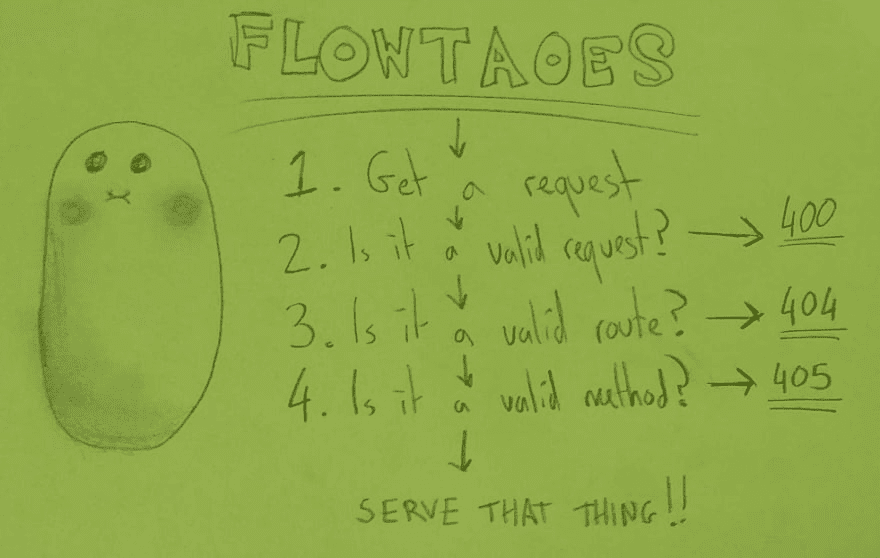 FLOWTAOES
1. Get a request
2. Is it a valid request? → 400
3. Is it a valid route? → 404
4. Is it a valid method? → 405
SERVE THAT THING!!